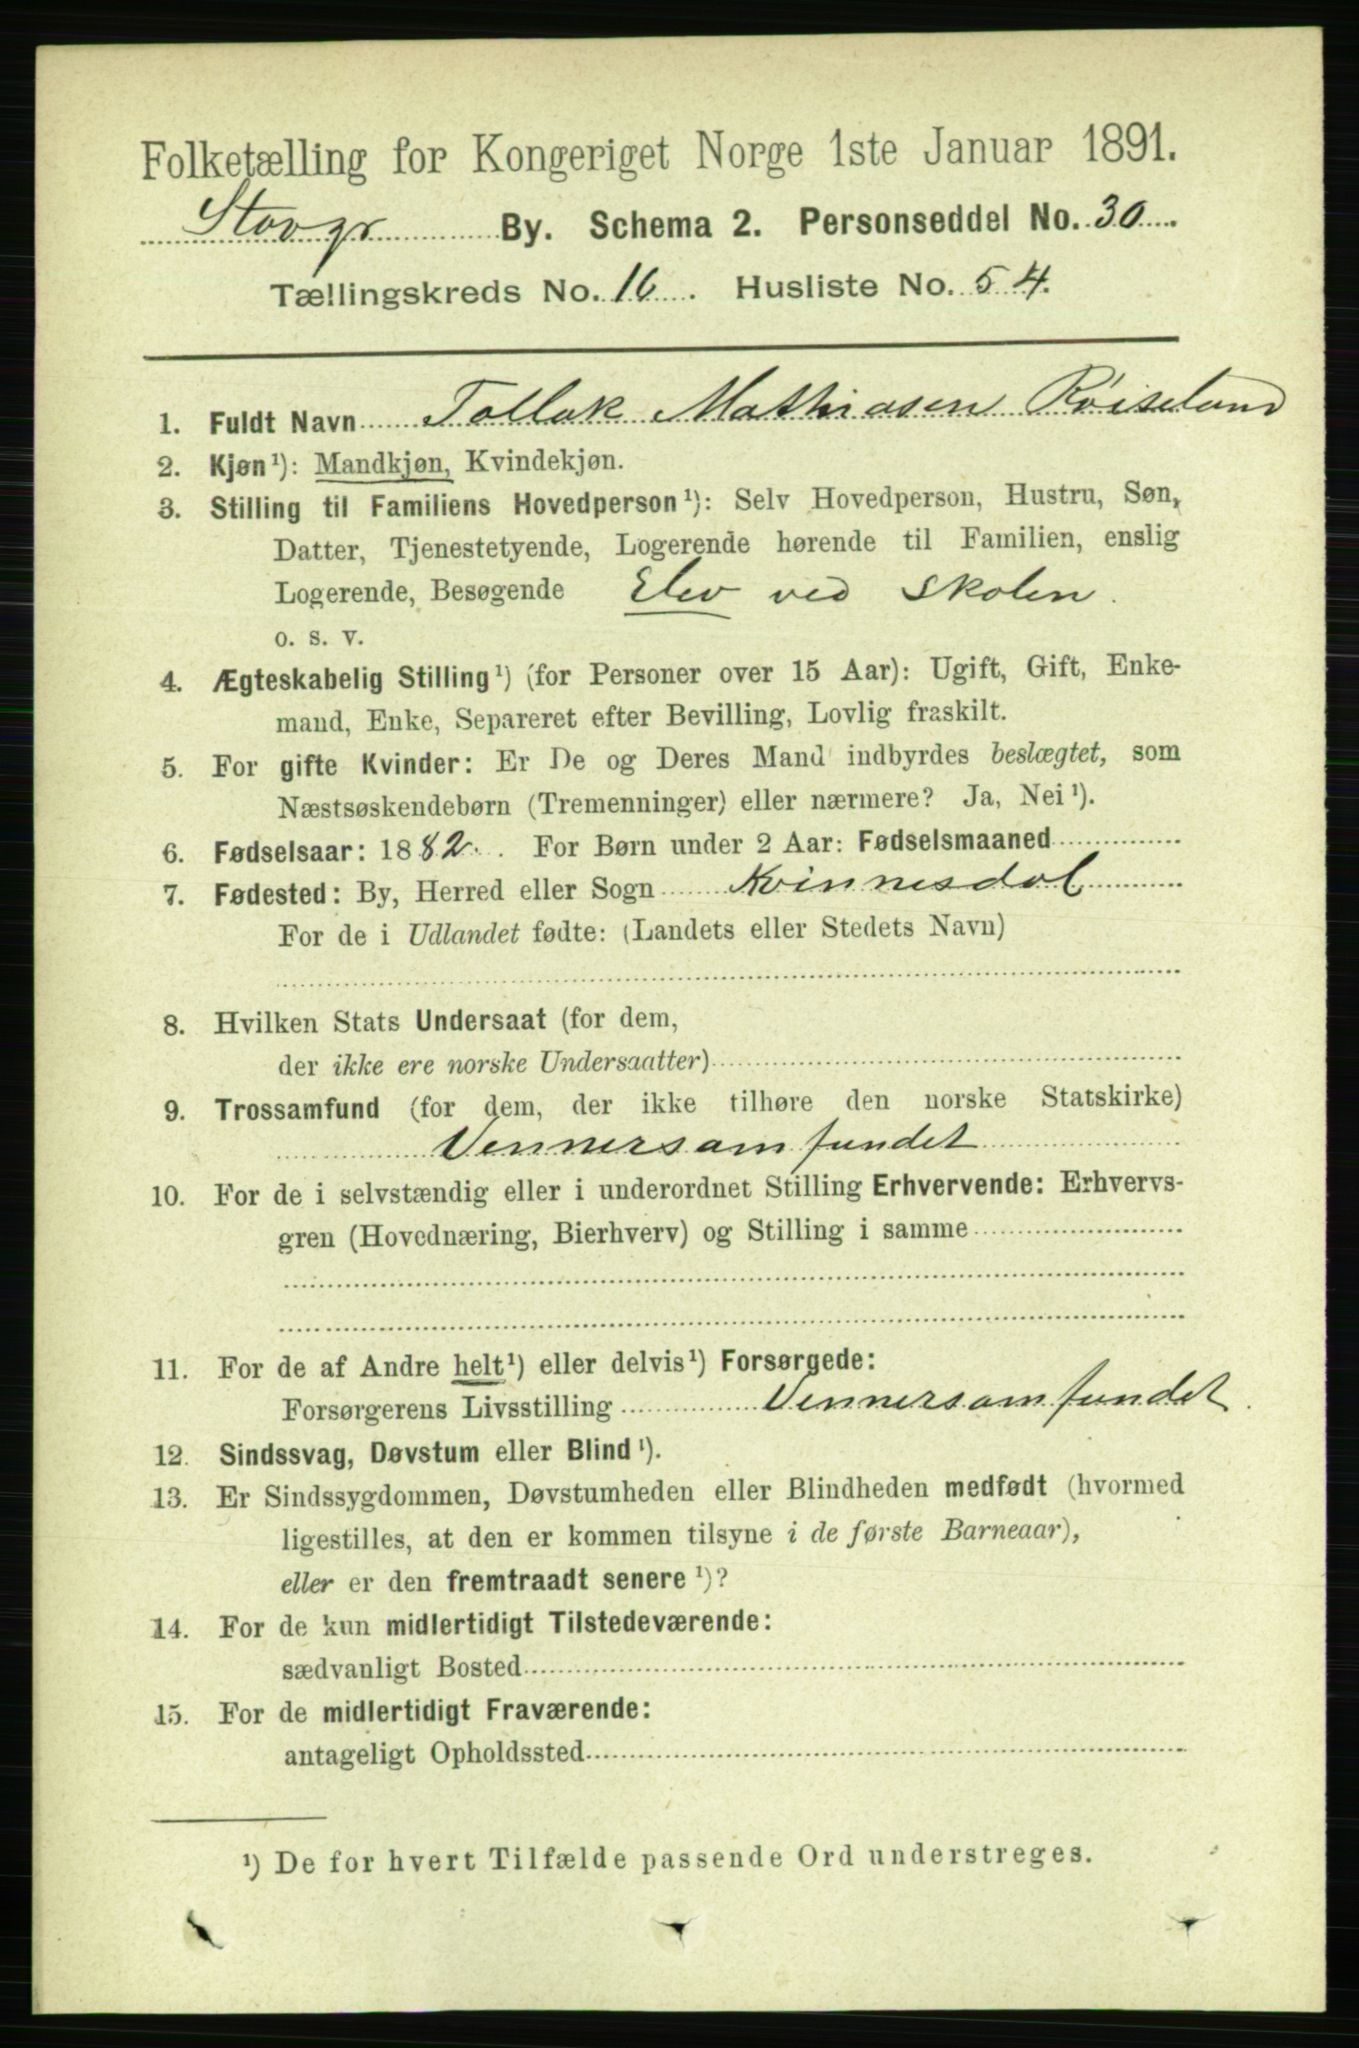 Folketælling for Kongeriget Norge 1ste Januar 1891.
Stavgr By. Schema 2. Personseddel No. 30
Tællingskreds No. 16. Husliste No. 54.
1. Fuldt Navn Tollak Mathiasen Röiseland
2. Kjøn¹): Mandkjøn, Kvindekjøn.
3. Stilling til Familiens Hovedperson¹): Selv Hovedperson, Hustru, Søn,
Datter, Tjenestetyende, Logerende hørende til Familien, enslig
Logerende, Besøgende Elev ved Skolen.
o. s. v.
4. Ægteskabelig Stilling¹) (for Personer over 15 Aar): Ugift, Gift, Enke-
mand, Enke, Separeret efter Bevilling, Lovlig fraskilt.
5. For gifte Kvinder: Er De og Deres Mand indbyrdes beslægtet, som
Næstsøskendebørn (Tremenninger) eller nærmere? Ja, Nei¹).
6. Fødselsaar: 1882. For Børn under 2 Aar: Fødselsmaaned
7. Fødested: By, Herred eller Sogn Kvinnesdal
For de i Udlandet fødte: (Landets eller Stedets Navn)
8. Hvilken Stats Undersaat (for dem,
der ikke ere norske Undersaatter)
9. Trossamfund (for dem, der ikke tilhøre den norske Statskirke)
Vennersamfundet
10. For de i selvstændig eller i underordnet Stilling Erhvervende: Erhvervs-
gren (Hovednæring, Bierhverv) og Stilling i samme
11. For de af Andre helt¹) eller delvis¹) Forsørgede:
Forsørgerens Livsstilling Vennersamfundet.
12. Sindssvag, Døvstum eller Blind¹).
13. Er Sindssygdommen, Døvstumheden eller Blindheden medfødt (hvormed
ligestilles, at den er kommen tilsyne i de første Barneaar),
eller er den fremtraadt senere¹)?
14. For de kun midlertidigt Tilstedeværende:
sædvanligt Bosted
15. For de midlertidigt Fraværende:
antageligt Opholdssted
¹) De for hvert Tilfælde passende Ord understreges.